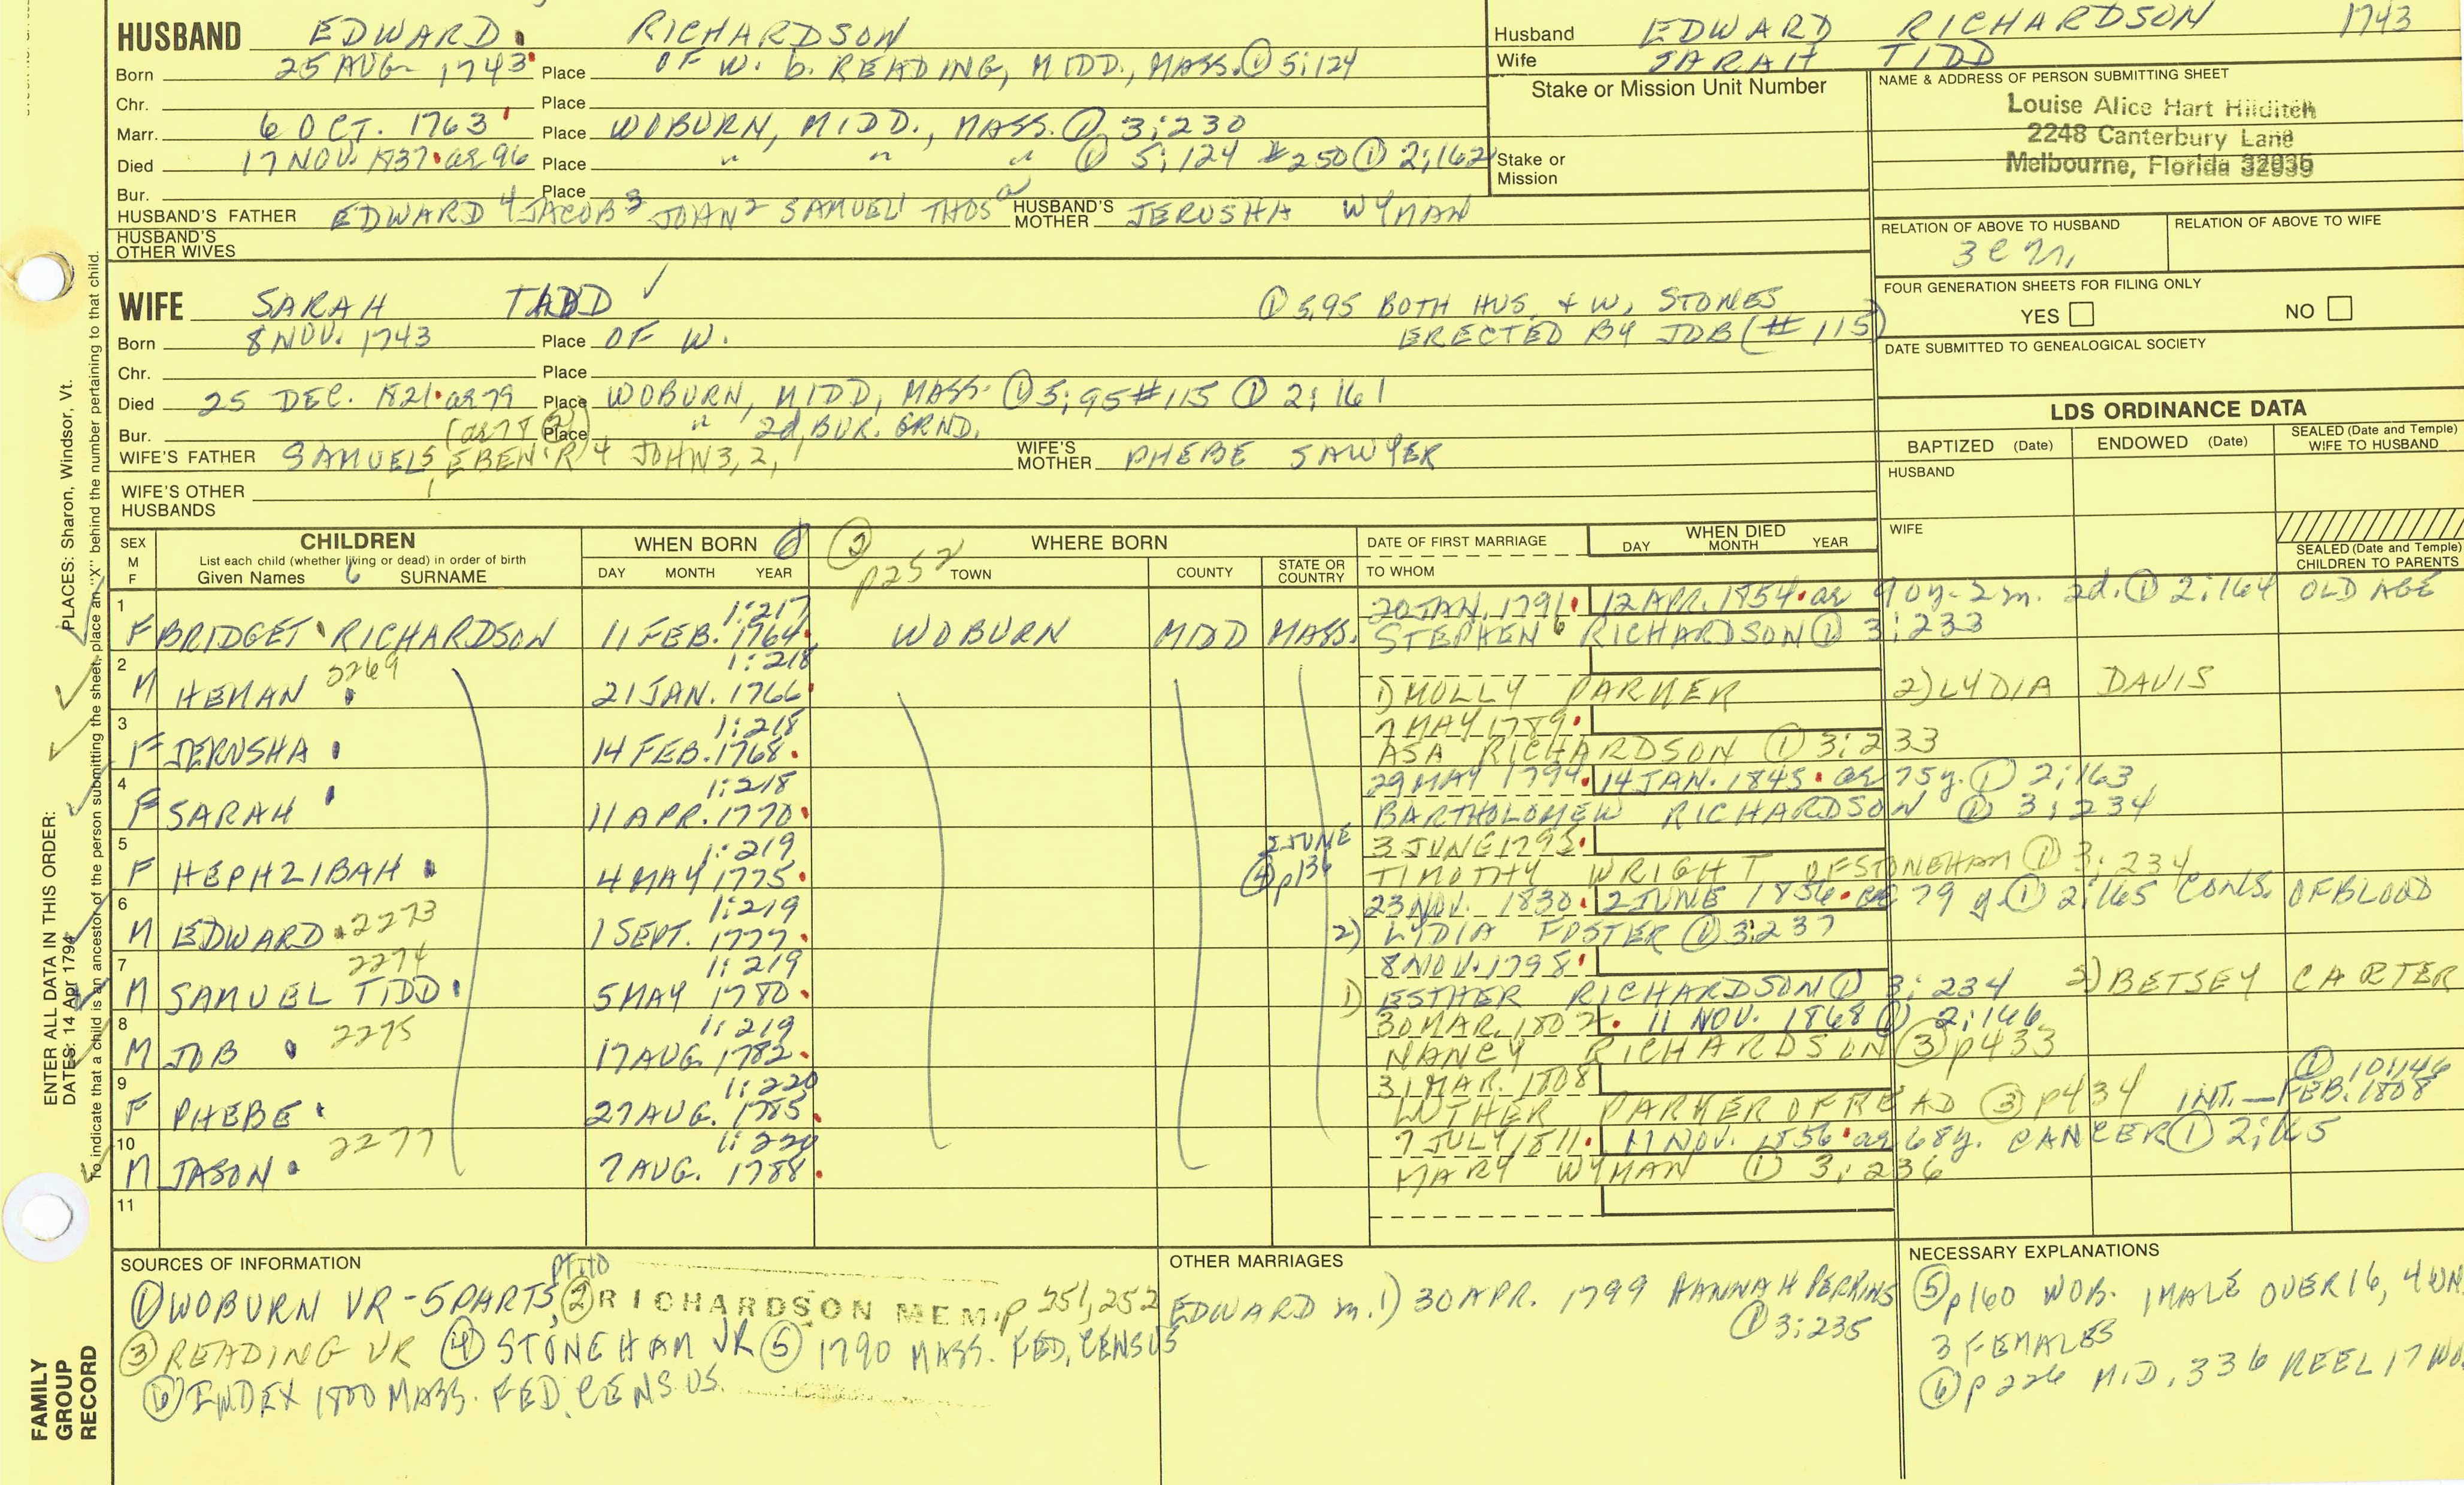 HUSBAND EDWARD RICHARDSON
Born 25 AUG 1743 Place OF W. b. READING, MIDD., MASS. ① 5:124
Chr. Place
Marr. 6 OCT. 1763 Place WOBURN, MIDD., MASS. ① 3:230
Died 17 NOV. 1837 ae 96 Place " " " ① 5:124 #250 ① 2:162
Bur. Place
HUSBAND'S FATHER EDWARD 4 JACOB 3 JOHN 2 SAMUEL 1 THOS a HUSBAND'S MOTHER JERUSHA WYMAN
HUSBAND'S OTHER WIVES
Husband EDWARD RICHARDSON 1743
Wife SARAH TIDD
Stake or Mission Unit Number
Stake or Mission
NAME & ADDRESS OF PERSON SUBMITTING SHEET
Louise Alice Hart Hilditch
2248 Canterbury Lane
Melbourne, Florida 32935
RELATION OF ABOVE TO HUSBAND RELATION OF ABOVE TO WIFE
WIFE SARAH TIDD ✓ ① 5,95 BOTH HUS. + W, STONES
ERECTED BY JOB (# 115)
Born 8 NOV. 1743 Place OF W.
Chr. Place
Died 25 DEC. 1821 ae 79 Place WOBURN, MIDD, MASS. ① 5:95 #115 ① 2:161
Bur. (ae 78 ②) Place " 2d, BUR. GRND.
WIFE'S FATHER SAMUEL 5, EBEN'R 4 JOHN 3, 2, 1 WIFE'S MOTHER PHEBE SAWYER
WIFE'S OTHER HUSBANDS
FOUR GENERATION SHEETS FOR FILING ONLY
YES NO
DATE SUBMITTED TO GENEALOGICAL SOCIETY
LDS ORDINANCE DATA
BAPTIZED (Date) ENDOWED (Date) SEALED (Date and Temple) WIFE TO HUSBAND
HUSBAND
WIFE
SEALED (Date and Temple) CHILDREN TO PARENTS
SEX M F CHILDREN WHEN BORN ② p252 WHERE BORN DATE OF FIRST MARRIAGE WHEN DIED
List each child (whether living or dead) in order of birth
Given Names 6 SURNAME DAY MONTH YEAR TOWN COUNTY STATE OR COUNTRY TO WHOM DAY MONTH YEAR
1 1:217 20 JAN. 1791 12 APR. 1854 ae 90y-2m. 2d. ① 2:164 OLD AGE
F BRIDGET RICHARDSON 11 FEB. 1764 WOBURN MIDD MASS. STEPHEN 6 RICHARDSON ① 3:233
2 2269 1:218
M HEMAN 21 JAN. 1766 1) MOLLY PARKER 2) LYDIA DAVIS
3 1:218 7 MAY 1789
F JERUSHA 14 FEB. 1768 ASA RICHARDSON ① 3:233
4 1:218 29 MAY 1794 14 JAN. 1845 ae 75y. ① 2:163
F SARAH 11 APR. 1770 BARTHOLOMEW RICHARDSON ① 3:234
5 1:219 2 JUNE ④ p136 3 JUNE 1795
F HEPHZIBAH 4 MAY 1775 TIMOTHY WRIGHT OF STONEHAM ① 3:234
6 1:219 23 NOV. 1830 2 JUNE 1856 ae 79 y ① 2:165 CONS. OF BLOOD
M EDWARD 2273 1 SEPT. 1777 2) LYDIA FOSTER ① 3:237
7 2274 1:219 8 NOV. 1798
M SAMUEL TIDD 5 MAY 1780 1) ESTHER RICHARDSON ① 3:234 2) BETSEY CARTER
8 2275 1:219 30 MAR. 1802 11 NOV. 1868 ① 2:166
M JOB 17 AUG. 1782 NANCY RICHARDSON ③ p433
9 1:220 31 MAR. 1808 ① 10:146
F PHEBE 27 AUG. 1785 LUTHER PARKER OF READ ③ p434 INT. — FEB. 1808
10 2277 1:220 7 JULY 1811 17 NOV. 1856 ae 68y. CANCER ① 2:165
M JASON 7 AUG. 1788 MARY WYMAN ① 3:236
11
SOURCES OF INFORMATION
① WOBURN VR - 5 PARTS, ② RICHARDSON MEM. p 251, 252
③ READING VR ④ STONEHAM VR ⑤ 1790 MASS. FED. CENSUS
⑥ INDEX 1800 MASS. FED. CENSUS.
OTHER MARRIAGES
EDWARD m. 1) 30 APR. 1799 HANNAH PERKINS
① 3:235
NECESSARY EXPLANATIONS
⑤ p160 WOB. 1 MALE OVER 16, 4 UN
3 FEMALES
⑥ p226 MID. 336 REEL 17 WO
ENTER ALL DATA IN THIS ORDER:
PLACES: Sharon, Windsor, Vt.
DATES: 14 Apr 1794
To indicate that a child is an ancestor of the person submitting the sheet, place an "X" behind the number pertaining to that child.
FAMILY GROUP RECORD